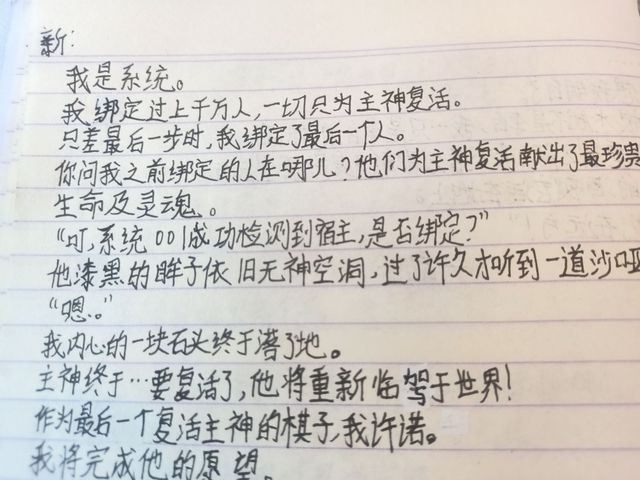 新:
我是系统。
我绑定过上千万人,一切只为主神复活。
只差最后一步时,我绑定了最后一个人。
你问我之前绑定的人在哪儿?他们为主神复活献出了最珍贵
生命及灵魂。
“叮,系统001成功检测到宿主,是否绑定?”
他漆黑的眸子依旧无神空洞,过了许久才听到一道沙哑
“嗯。”
我内心的一块石头终于落了地。
主神终于…要复活了,他将重新临驾于世界!
作为最后一个复活主神的棋子,我许诺。
我将完成他的愿望。